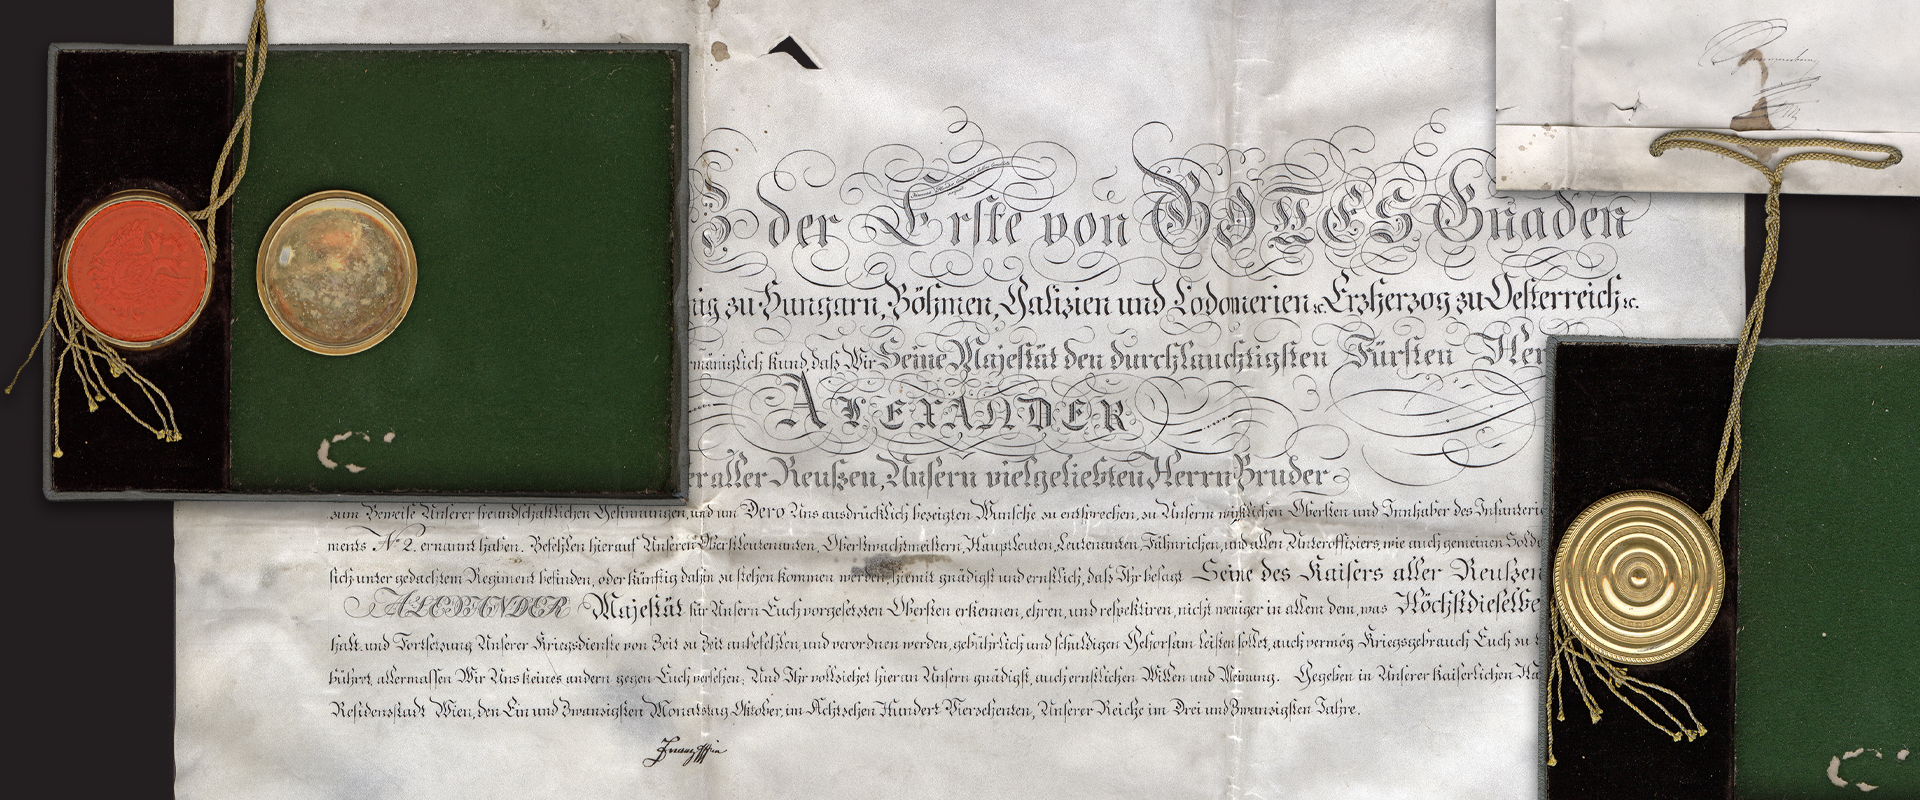 der Erste von GOTTES Gnaden
zu Hungarn, Böhmen, Galizien und Lodomerien ꝛc. Erzherzog zu Oesterreich ꝛc.
kund, daß Wir Seine Majestät den durchlauchtigsten Fürsten
ALEXANDER
aller Reußen, Unsern vielgeliebten Herrn Bruder
zum Beweise Unserer freundschaftlichen Gesinnungen, und um Dero Uns ausdrücklich bezeigten Wunsche zu entsprechen, zu Unserm wirklichen Obersten und Innhaber des
ments No 2. ernannt haben. Befehlen hierauf Unseren Oberstleutenanten, Oberstwachtmeistern, Hauptleuten, Leutenanten, Fähnrichen, und allen Unteroffiziers, wie auch gemeinen
sich unter gedachtem Regiment befinden, oder künftig dahin zu stehen kommen werden, hiemit gnädigst und ernstlich, daß Ihr besagt Seine des Kaisers aller Reußen
ALEXANDER Majestät für Unsern Euch vorgesetzten Obersten erkennen, ehren, und respektiren, nicht weniger in allem dem, was Höchstdieselbe
halt und Fortsetzung Unserer Kriegsdienste von Zeit zu Zeit anbefehlen, und verordnen werden, gebührlich und schuldigen Gehorsam leisten sollet, auch vermög Kriegsgebrauch Euch zu
bühret, allermassen Wir Uns keines andern gegen Euch versehen; Und Ihr vollziehet hieran Unsern gnädigst, auch ernstlichen Willen und Meinung. Gegeben in Unserer Kaiserlichen
Residenzstadt Wien, den Ein und Zwanzigsten Monatstag Oktober, im Achtzehen Hundert Vierzehenten, Unserer Reiche im Drei und Zwanzigsten Jahre.